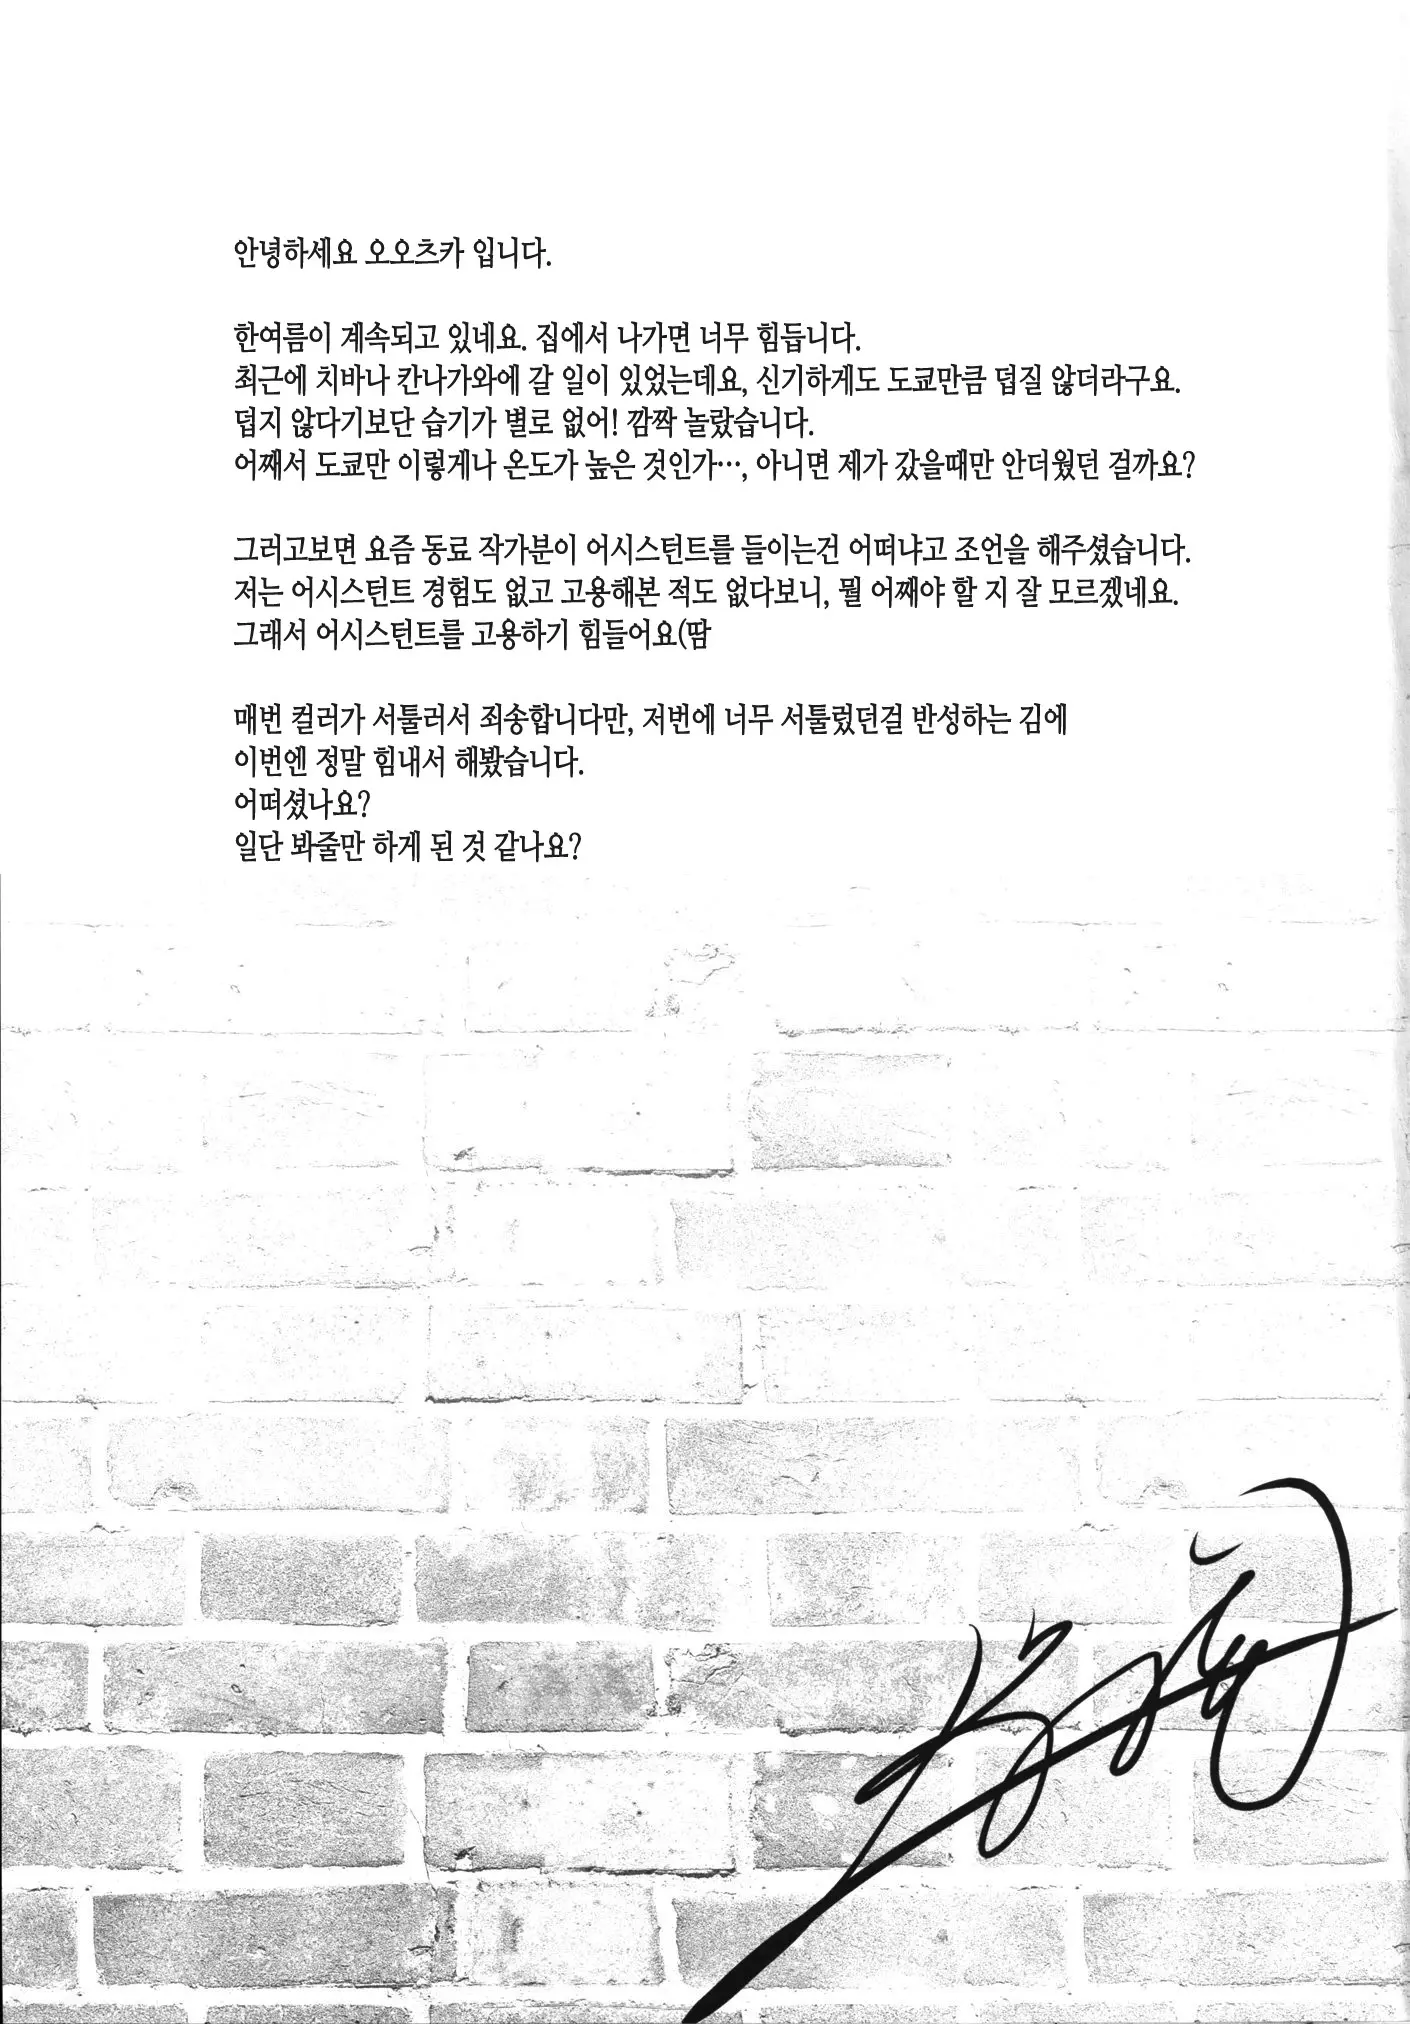 안녕하세요 오오츠카 입니다.
한여름이 계속되고 있네요. 집에서 나가면 너무 힘듭니다.
최근에 치바나 칸나가와에 갈 일이 있었는데요, 신기하게도 도쿄만큼 덥질 않더라구요.
덥지 않다기보단 습기가 별로 없어! 깜짝 놀랐습니다.
어째서 도쿄만 이렇게나 온도가 높은 것인가…, 아니면 제가 갔을때만 안더웠던 걸까요?
그러고보면 요즘 동료 작가분이 어시스턴트를 들이는건 어떠냐고 조언을 해주셨습니다.
저는 어시스턴트 경험도 없고 고용해본 적도 없다보니, 뭘 어째야 할 지 잘 모르겠네요.
그래서 어시스턴트를 고용하기 힘들어요(땀
매번 컬러가 서툴러서 죄송합니다만, 저번에 너무 서툴렀던걸 반성하는 김에
이번엔 정말 힘내서 해봤습니다.
어떠셨나요?
일단 봐줄만 하게 된 것 같나요?